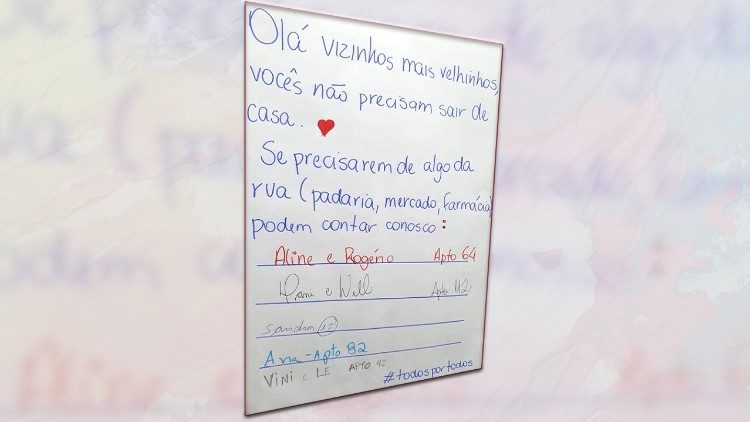 Olá vizinhos mais velhinhos,
vocês não precisam sair de
casa.
Se precisarem de algo da
rua (padaria, mercado, farmácia)
podem contar conosco:
Aline e Rogério Apto 64
e Will Apto 42
Sandra 12
Ana - Apto 82
Vini e LE APTO 42
#todosportodos